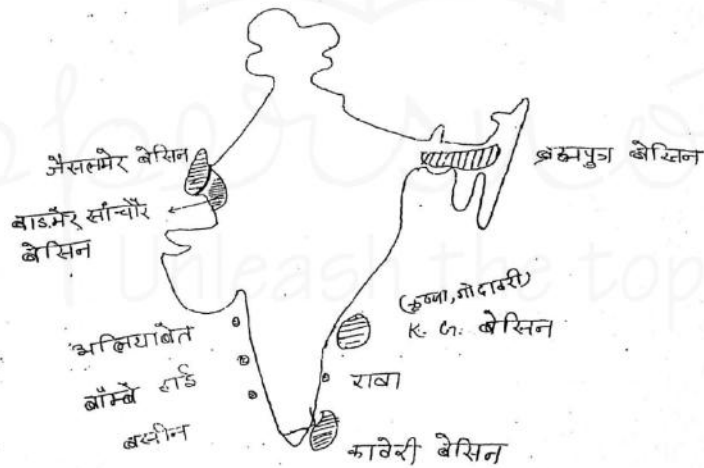 जैसलमेर बेसिन
बाड़मेर सांचौर
बेसिन
ब्रह्मपुत्र बेसिन
(कृष्णा, गोदावरी)
K. G. बेसिन
अलियाबेत
बॉम्बे हाई
बसीन
रावा
कावेरी बेसिन
Unleash the top